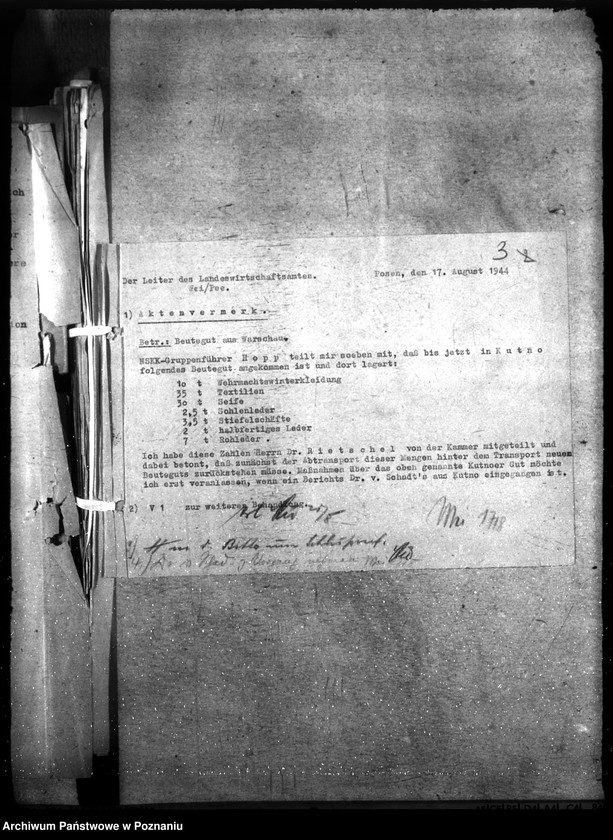 3
Der Leiter des Landeswirtschaftsamtes. Posen, den 17. August 1944
Wei/Pee.
1) Aktenvermerk.
Betr.: Beutegut aus Warschau.
NSKK-Gruppenführer Hopp teilt mir soeben mit, daß bis jetzt in Kutno
folgendes Beutegut angekommen ist und dort lagert:
10 t Wehrmachtswinterkleidung
35 t Textilien
30 t Seife
2,5 t Sohlenleder
3,5 t Stiefelschäfte
2 t halbfertiges Leder
7 t Rohleder.
Ich habe diese Zahlen Herrn Dr. Rietschel von der Kammer mitgeteilt und
dabei betont, daß zunächst der Abtransport dieser Mengen hinter dem Transport neuem
Beuteguts zurückstehen müsse. Maßnahmen über das oben genannte Kutnoer Gut möchte
ich erst veranlassen, wenn ein Berichts Dr. v. Schadt's aus Kutno eingegangen ist.
2) V 1 zur weiteren Behandlung.
17/8
ch
ion
Archiwum Państwowe w Poznaniu